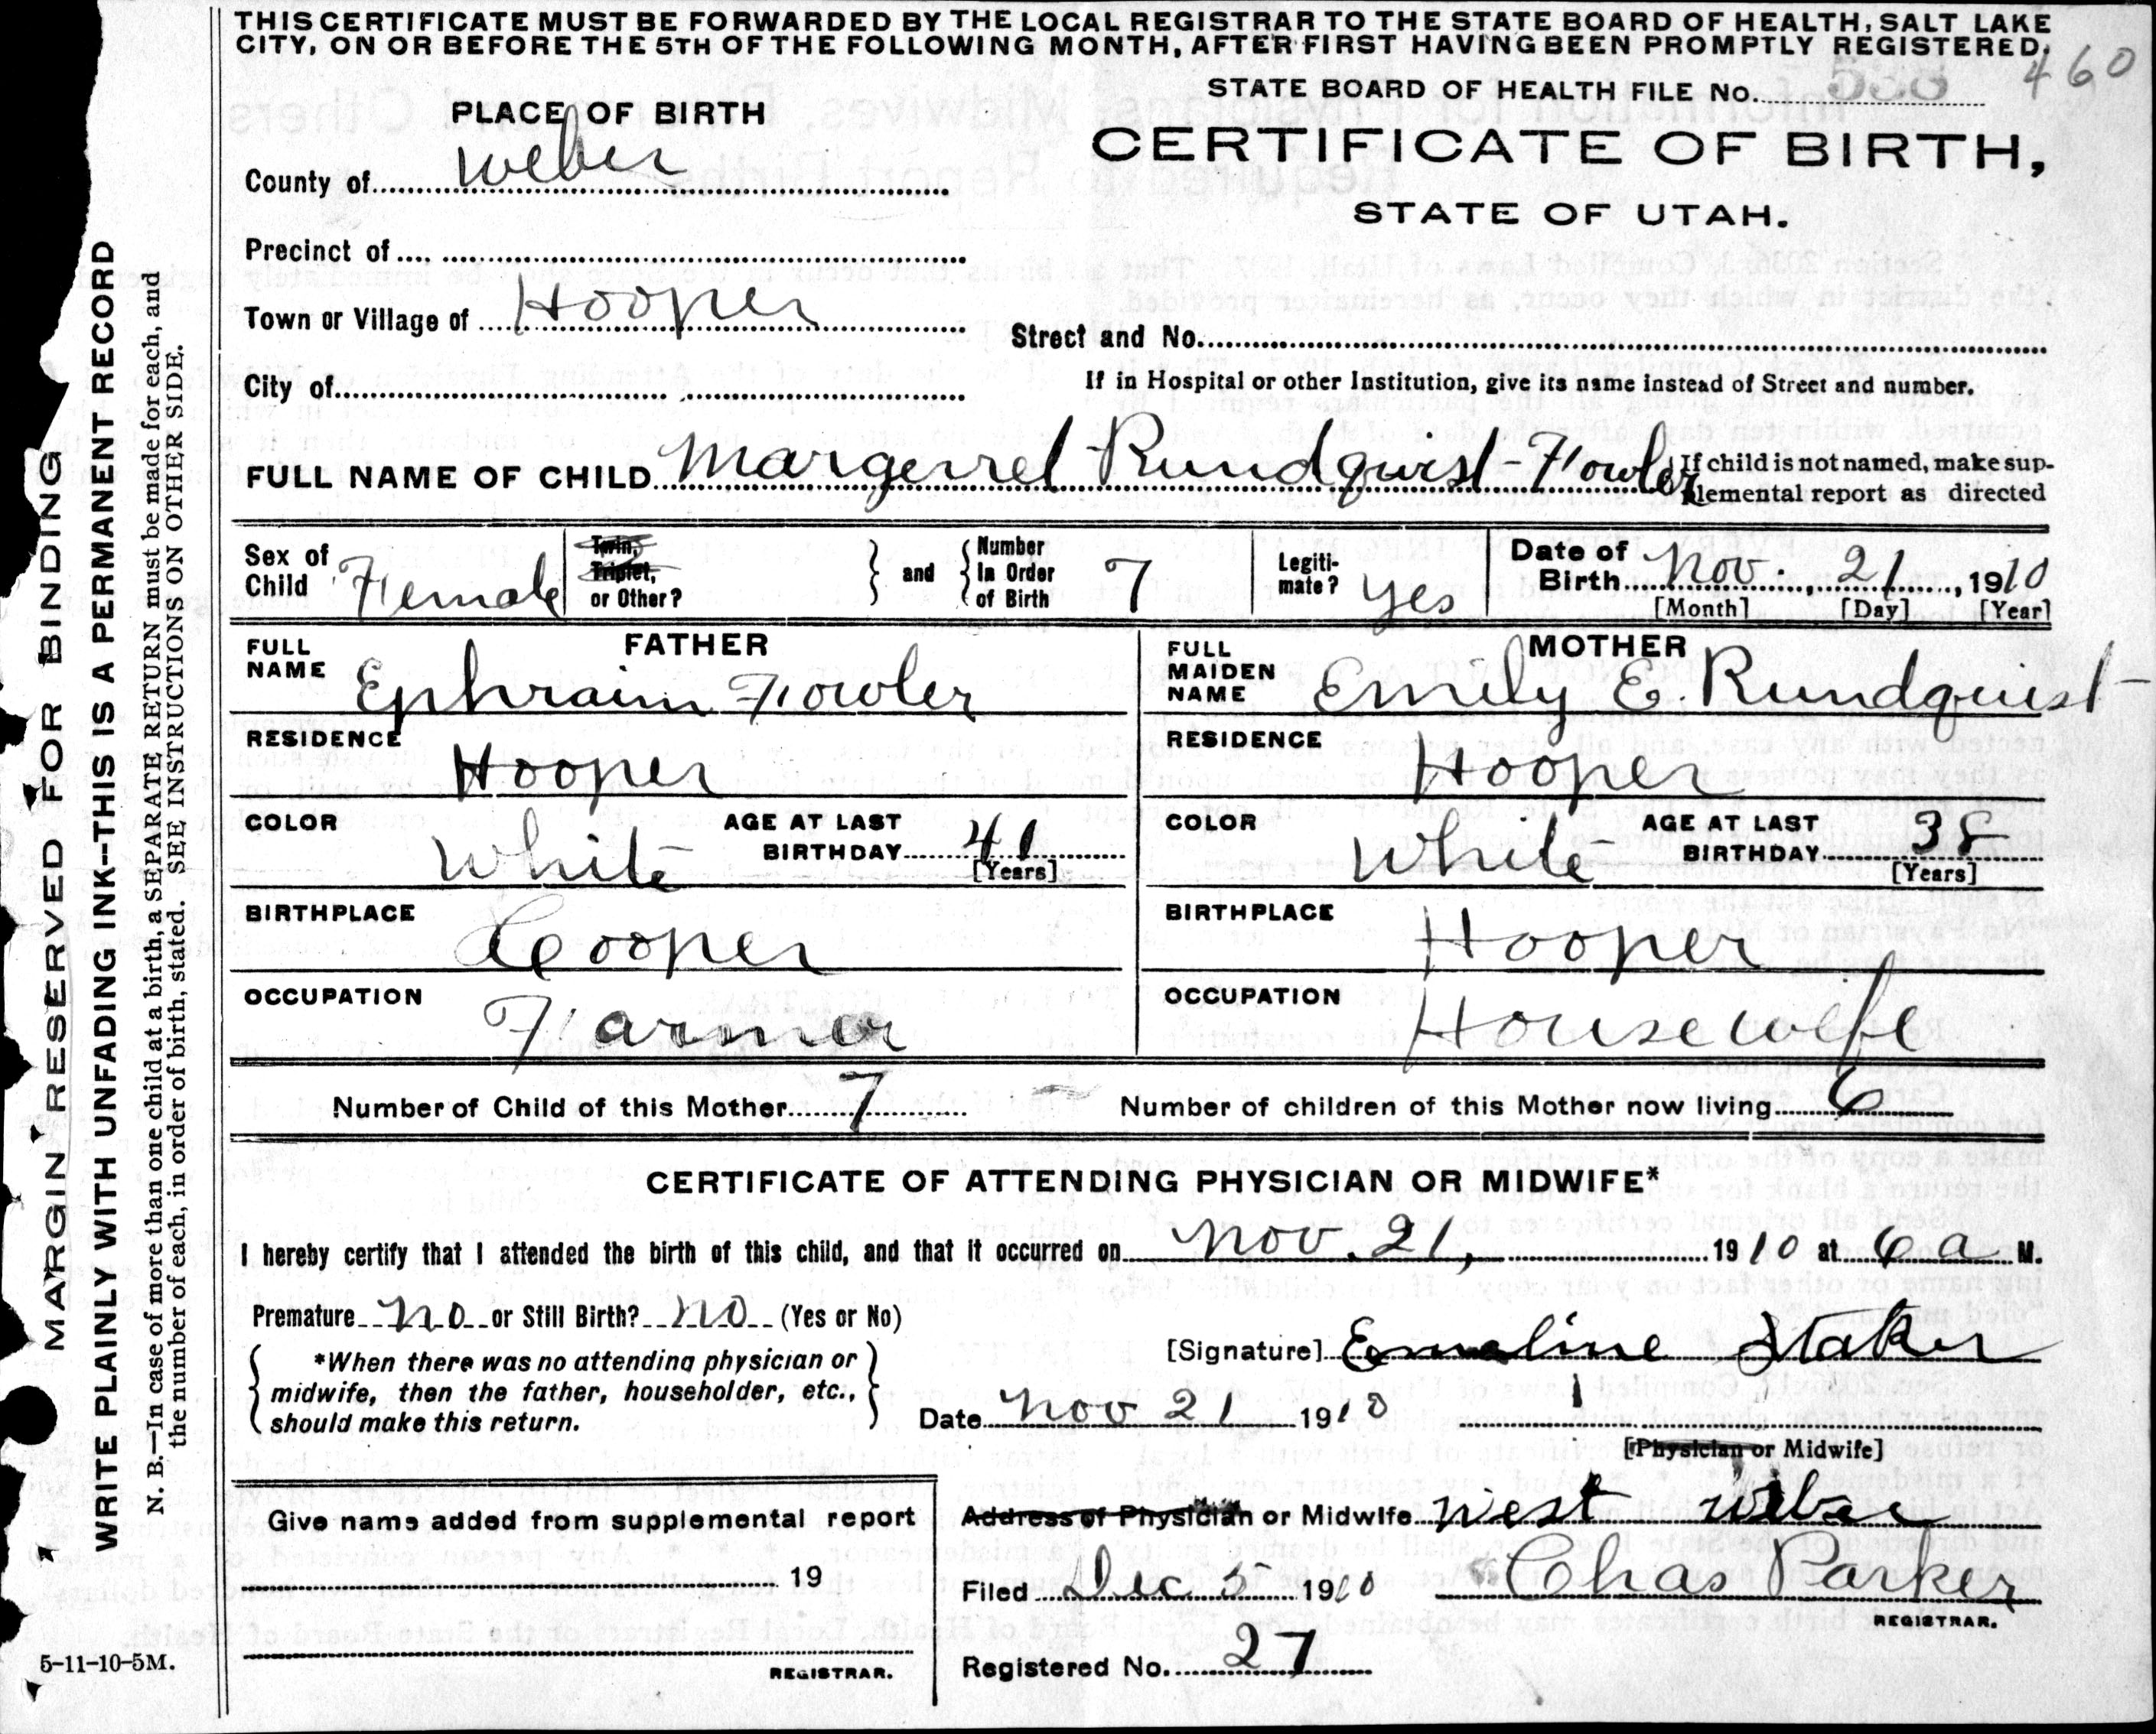 THIS CERTIFICATE MUST BE FORWARDED BY THE LOCAL REGISTRAR TO THE STATE BOARD OF HEALTH, SALT LAKE
CITY, ON OR BEFORE THE 5TH OF THE FOLLOWING MONTH, AFTER FIRST HAVING BEEN PROMPTLY REGISTERED.
460
STATE BOARD OF HEALTH FILE No.
PLACE OF BIRTH
CERTIFICATE OF BIRTH,
STATE OF UTAH.
County of Weber
Precinct of
Town or Village of Hooper
Street and No.
City of
If in Hospital or other Institution, give its name instead of Street and number.
FULL NAME OF CHILD Margerrel Rundquist-Fowler
If child is not named, make sup-
plemental report as directed
Sex of Child Female
Twin, Triplet, or Other?
and
Number In Order of Birth 7
Legiti-mate? Yes
Date of Birth Nov. 21, 1910
[Month] [Day] [Year]
FATHER
FULL NAME Ephraim Fowler
RESIDENCE Hooper
COLOR White AGE AT LAST BIRTHDAY 41 [Years]
BIRTHPLACE Hooper
OCCUPATION Farmer
MOTHER
FULL MAIDEN NAME Emily E. Rundquist
RESIDENCE Hooper
COLOR White AGE AT LAST BIRTHDAY 38 [Years]
BIRTHPLACE Hooper
OCCUPATION Housewife
Number of Child of this Mother 7 Number of children of this Mother now living 6
CERTIFICATE OF ATTENDING PHYSICIAN OR MIDWIFE*
I hereby certify that I attended the birth of this child, and that it occurred on Nov. 21, 1910 at 6 a M.
Premature no or Still Birth? no (Yes or No)
*When there was no attending physician or
midwife, then the father, householder, etc.,
should make this return.
[Signature] Emeline Staker
Date Nov 21 1910
[Physician or Midwife]
Give name added from supplemental report
19
REGISTRAR.
Address of Physician or Midwife West Weber
Filed Dec 5 1910 Chas Parker
REGISTRAR.
Registered No. 27
MARGIN RESERVED FOR BINDING
WRITE PLAINLY WITH UNFADING INK--THIS IS A PERMANENT RECORD
N. B.—In case of more than one child at a birth, a SEPARATE RETURN must be made for each, and
the number of each, in order of birth, stated. SEE INSTRUCTIONS ON OTHER SIDE.
5-11-10-5M.